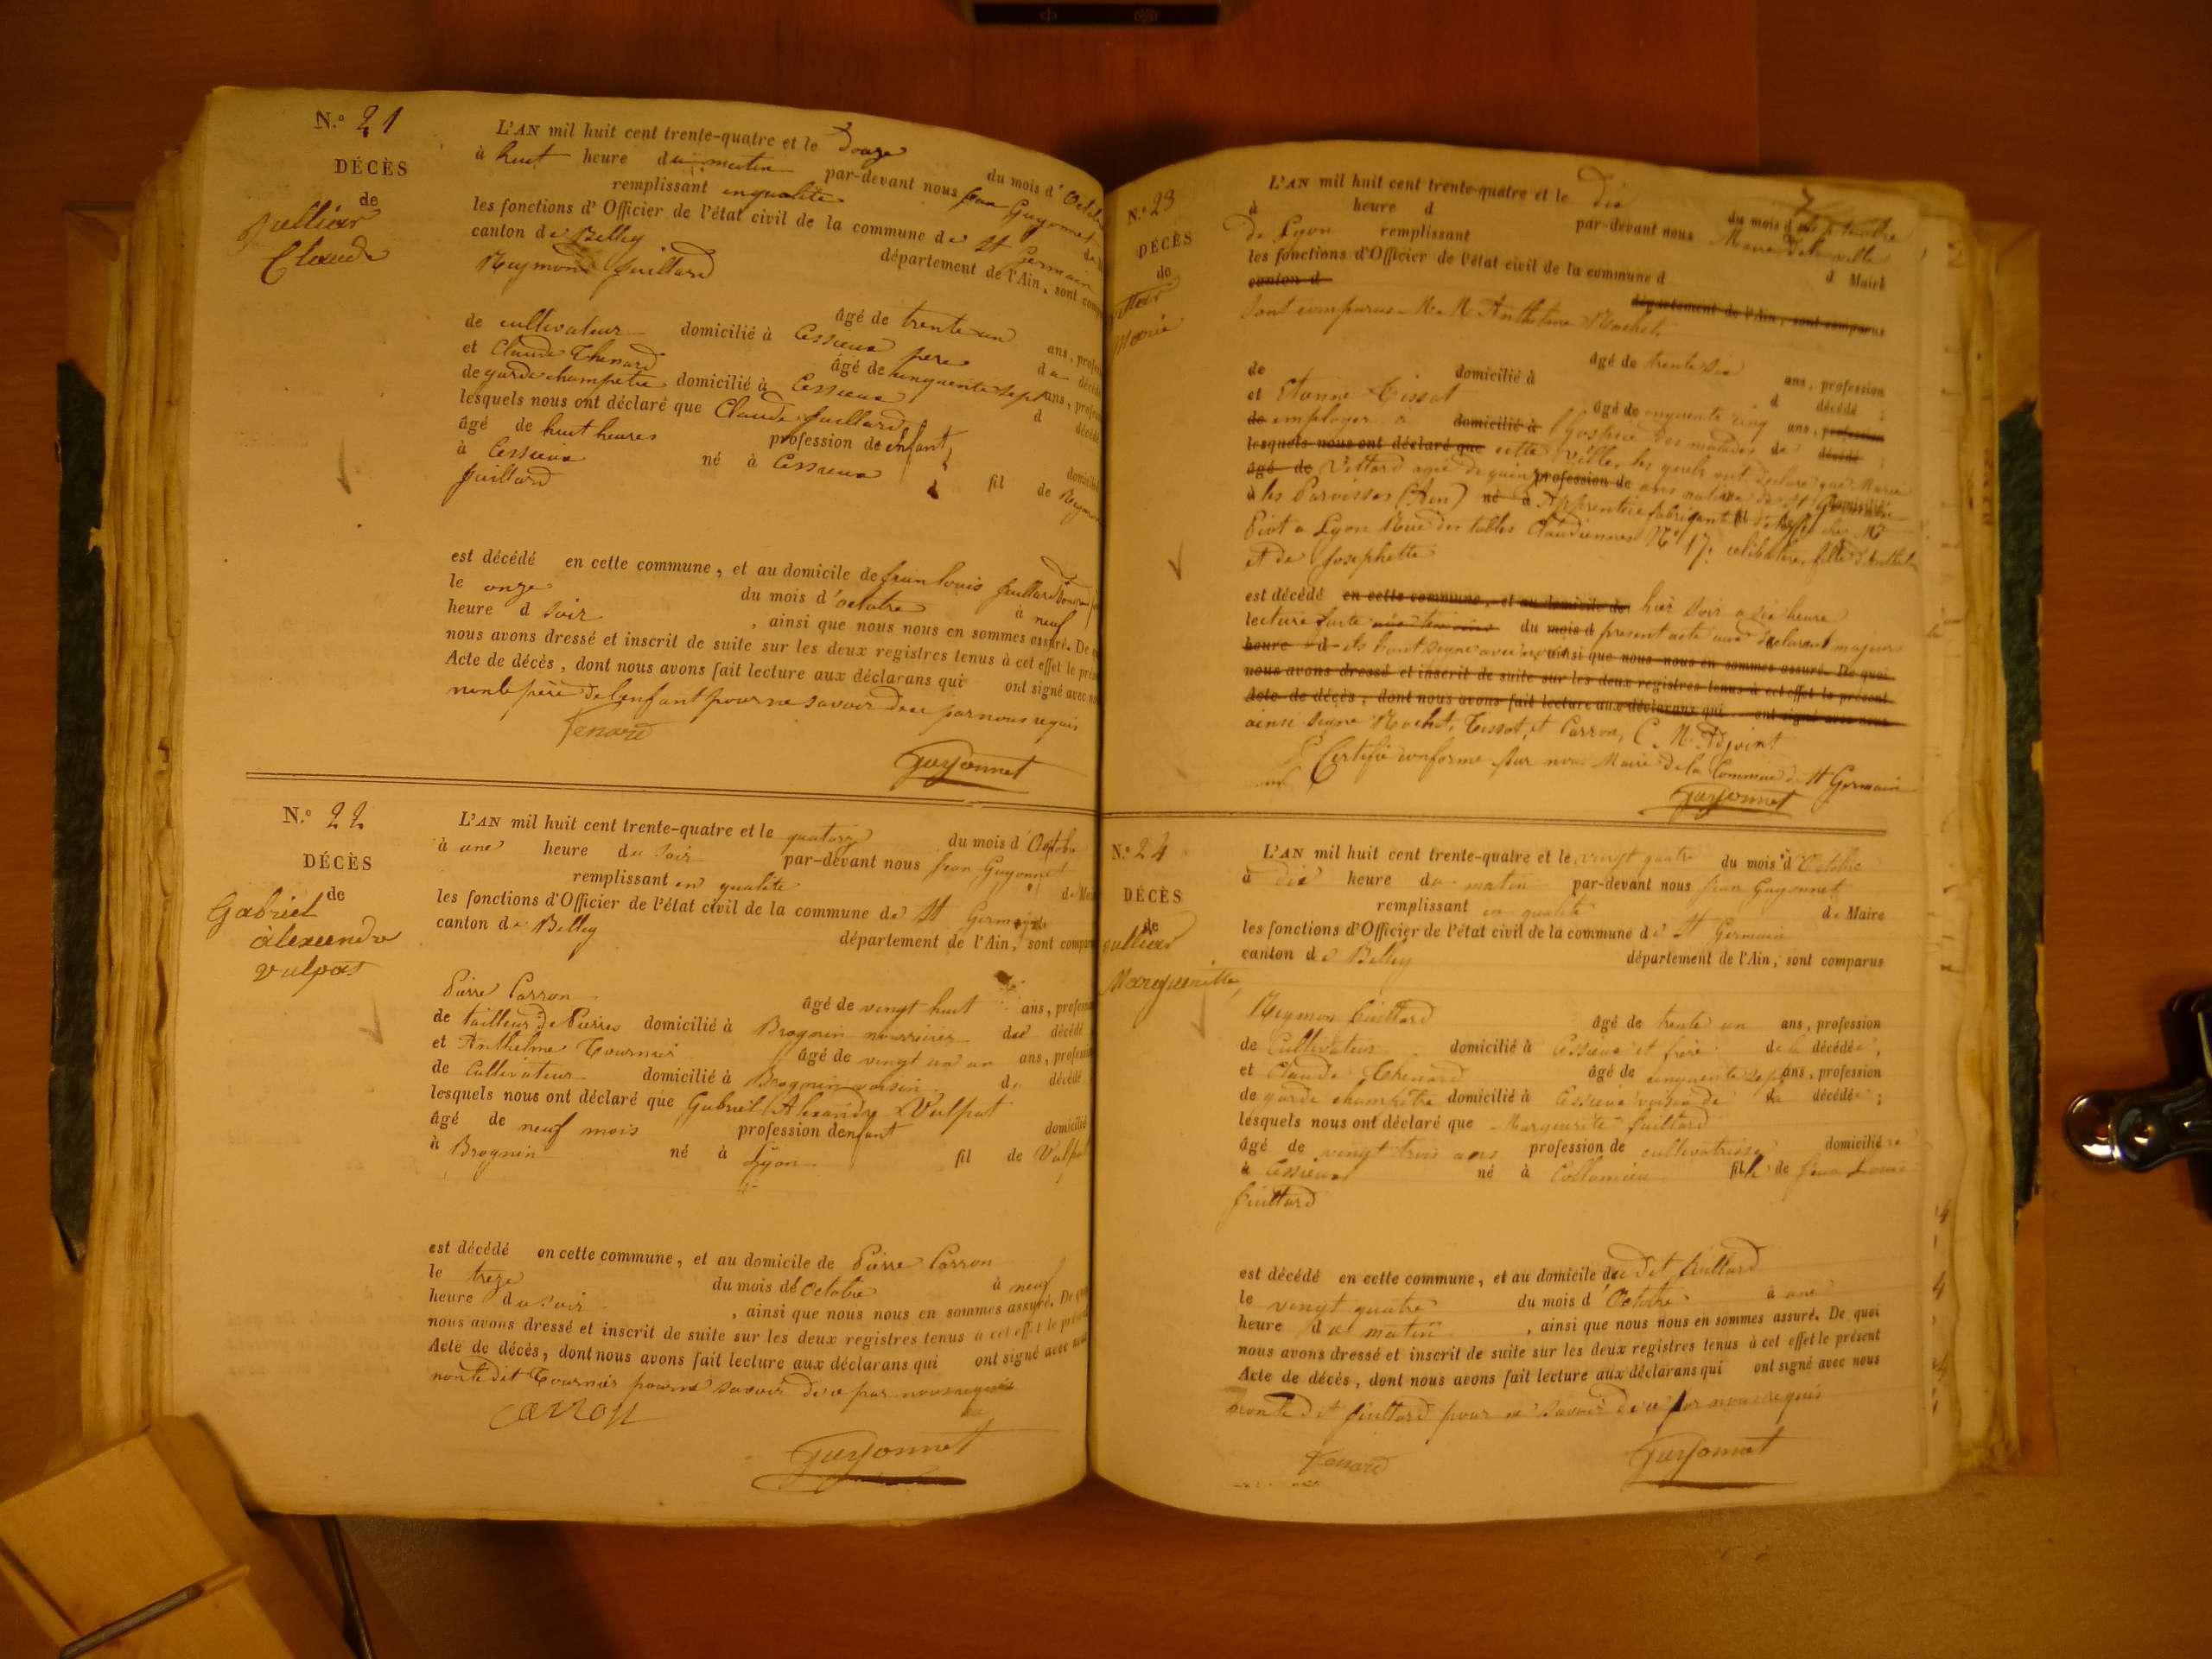 N.° 21
DÉCÈS
de
Juilliar
Claude
L'AN mil huit cent trente-quatre et le Douze du mois d'Octobre
à huit heure du matin par-devant nous Jean Guyonnet
remplissant en qualité de
les fonctions d'Officier de l'état civil de la commune de St Germain
canton de Belley département de l'Ain, sont
Reymond Juillard
âgé de trente un ans,
de cultivateur domicilié à Cessieux père du
et Claude Thenard âgé de cinquante sept ans,
de garde champetre domicilié à Cessieux d
lesquels nous ont déclaré que Claude Juillard
âgé de huit heures profession de enfant
à Cessieux né à Cessieux fil de
Juillard
est décédé en cette commune, et au domicile de Jean Louis Juillard
le onze du mois d'octobre à neuf
heure d soir , ainsi que nous nous en sommes assuré. De
nous avons dressé et inscrit de suite sur les deux registres tenus à cet effet le
Acte de décès, dont nous avons fait lecture aux déclarans qui ont signé avec
non le père de l'enfant pour ne savoir de ce par nous requis
Tenard
Guyonnet
N.° 22
DÉCÈS
de
Gabriel
alexandre
vulpat
L'AN mil huit cent trente-quatre et le quatorze du mois d'Octobre
à une heure du soir par-devant nous Jean Guyonnet
remplissant en qualité de
les fonctions d'Officier de l'état civil de la commune de St Germain
canton de Belley département de l'Ain, sont
Pierre Carron âgé de vingt huit ans,
de tailleur de Pierres domicilié à Brognin nourricier du décédé
et Anthelme Tournier âgé de vingt un an ans,
de Cultivateur domicilié à Brognin voisin du décédé
lesquels nous ont déclaré que Gabriel Alexandre Vulpat
âgé de neuf mois profession denfant domicilié
à Brognin né à Lyon fil de
est décédé en cette commune, et au domicile de Pierre Carron
le treze du mois de Octobre à neuf
heure du soir , ainsi que nous nous en sommes assuré. De
nous avons dressé et inscrit de suite sur les deux registres tenus à cet effet le
Acte de décès, dont nous avons fait lecture aux déclarans qui ont signé avec nous
non le dit Tournier pour ne savoir de ce par nous requis
Carron
Guyonnet
N.° 23
DÉCÈS
de
Marie
L'AN mil huit cent trente-quatre et le Dix du mois de Septembre
à heure d par-devant nous Maire de la ville
de Lyon remplissant d Maire
les fonctions d'Officier de l'état civil de la commune d
canton d département de l'Ain, sont comparus
sont comparus M. M. Anthelme Rochet
âgé de trente six ans, profession
de domicilié à d décédé ;
et Etienne Tissot âgé de cinquante cinq ans, profession
de employer à domicilié à l'hospice des malades de décédé ;
lesquels nous ont déclaré que cette ville, les quels ont déclaré que Marie
âgé de profession de ans domicilié
à les Paroisses (Ain) né à Apprentice fabricant fil de
Piot a Lyon Rue des tables Claudiennes N° 17. celibataire, fille d'Anthelme
et de Josephette
est décédé en cette commune, et au domicile de hier soir a six heure
lecture faite du mois d present acte aux declarant majeurs
heure d ils hont signe avec ainsi que nous nous en sommes assuré. De quoi
nous avons dressé et inscrit de suite sur les deux registres tenus à cet effet le présent
Acte de décès, dont nous avons fait lecture aux déclarans qui ont signé avec nous
ainsi signe Rochet, Tissot, et Carron, C. M. Adjoint
Certifie conforme par nous Maire de la Commune de St Germain
Guyonnet
N.° 24
DÉCÈS
de
Margueritte
L'AN mil huit cent trente-quatre et le vingt quatre du mois d'Octobre
à dix heure du matin par-devant nous Jean Guyonnet
remplissant en qualité de Maire
les fonctions d'Officier de l'état civil de la commune de St Germain
canton de Belley département de l'Ain, sont comparus
Reymon Juillard âgé de trente un ans, profession
de Cultivateur domicilié à Cessieux et frère de la décédée,
et Claude Thenard âgé de cinquente sept ans, profession
de garde champêtre domicilié à Cessieux voisin de la décédée ;
lesquels nous ont déclaré que Marguerite Juillard
âgé de vingt trois ans profession de cultivatrisse domicilié
à Cessieux né à Collomieu fille de Jean Louis
Juillard
est décédé en cette commune, et au domicile du dit Juillard
le vingt quatre du mois d'Octobre à une
heure du matin , ainsi que nous nous en sommes assuré. De quoi
nous avons dressé et inscrit de suite sur les deux registres tenus à cet effet le présent
Acte de décès, dont nous avons fait lecture aux déclarans qui ont signé avec nous
non le dit Juillard pour ne savoir de ce par nous requis
Tenard
Guyonnet